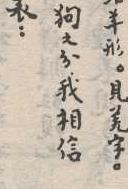 羊形。見羌字。
狗之分我相信
表：